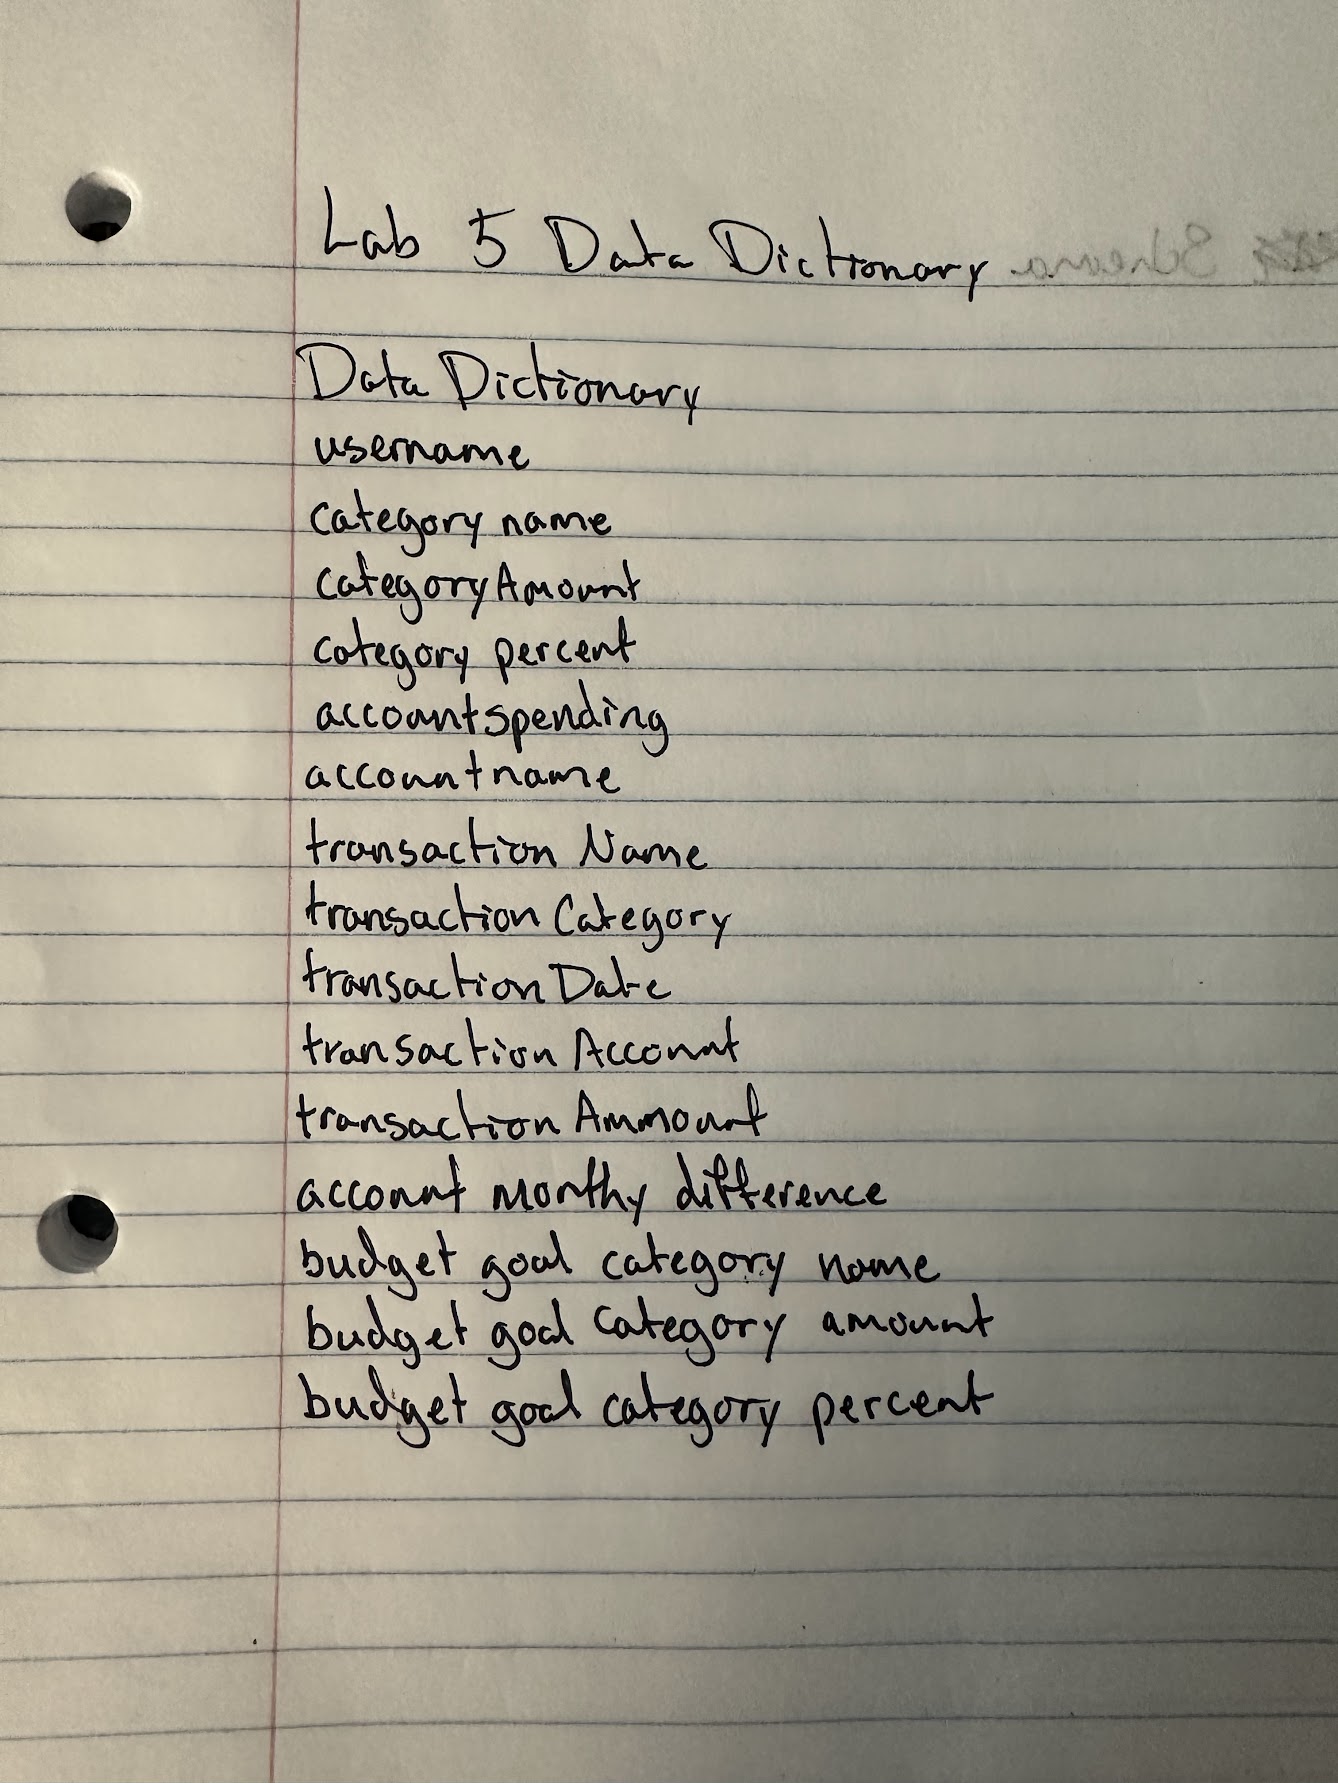 Lab 5 Data Dictionary
Data Dictionary
username
category name
categoryAmount
category percent
accountspending
accountname
transaction Name
transaction Category
transaction Date
transaction Account
transaction Ammount
account monthy difference
budget goal category name
budget goal category amount
budget goal category percent